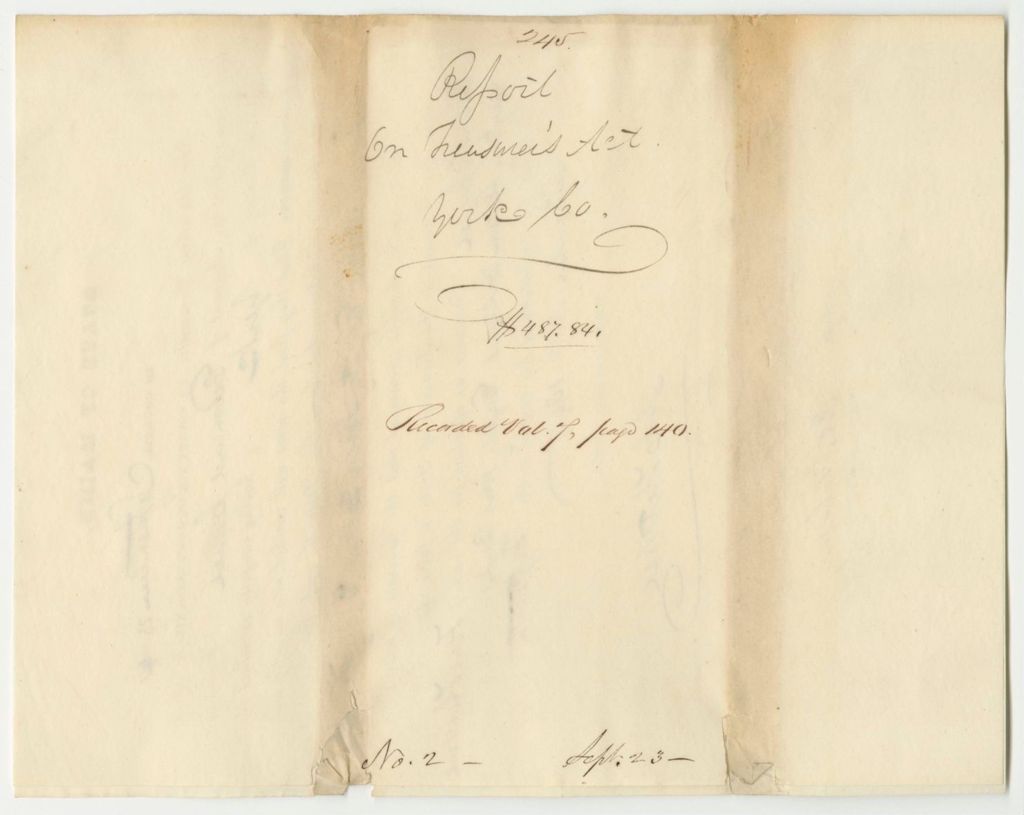 245.
Report
On Treasurer's Act.
York Co.
$487.84.
Recorded Vol. 7, page 140.
No. 2 – Sept. 23 –